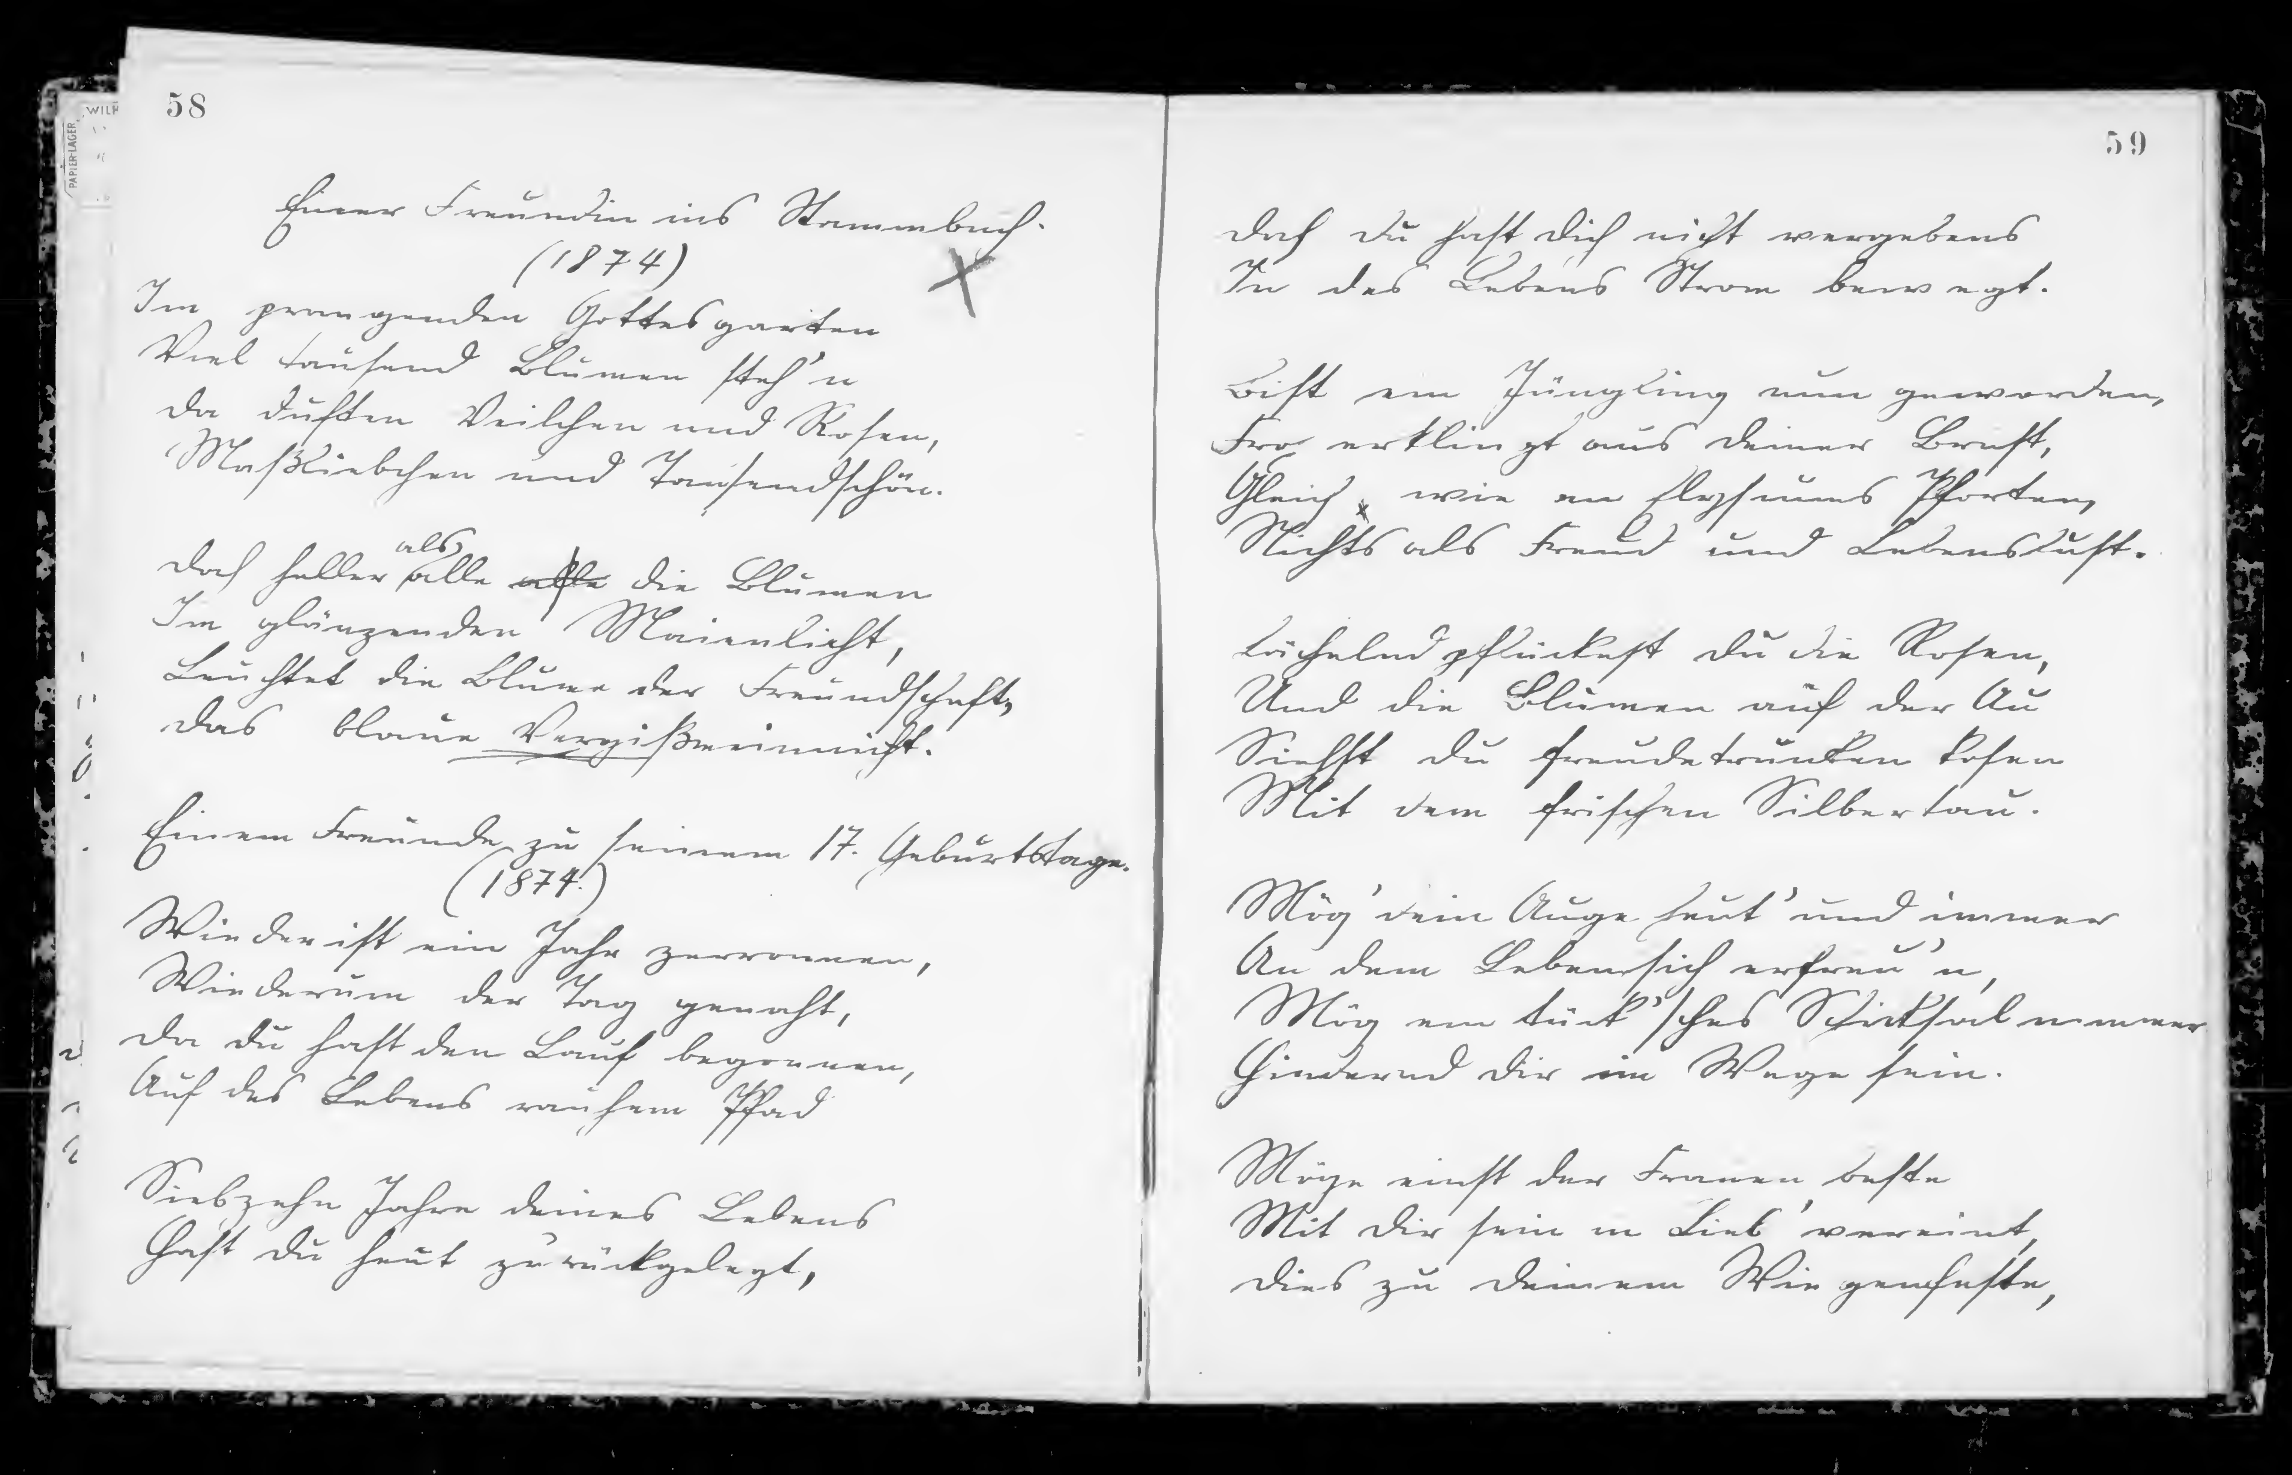 58
Einer Freundin ins Stammbuch.
(1874)
Im prangenden Gottesgarten
Viel tausend Blumen steh'n
Da duften Veilchen und Rosen,
Maßliebchen und Tausendschön.
Doch heller als alle die Blumen
Im glänzenden Maienlicht,
Leuchtet die Blume der Freundschaft,
Das blaue Vergißmeinnicht.
Einem Freunde zu seinem 17. Geburtstage.
(1874.)
Wieder ist ein Jahr zerronnen,
Wiederum der Tag genaht,
Da du hast den Lauf begonnen,
Auf des Lebens rauhem Pfad
Siebzehn Jahre deines Lebens
Hast du heut zurückgelegt,
59
Doch du hast dich nicht vergebens
In des Lebens Strom bewegt.
Bist ein Jüngling nun geworden,
Froh erklingt aus deiner Brust,
Gleich wie an Elysiums Pforten,
Nichts als Freud und Lebenslust.
Lächelnd pflückest du die Rosen,
Und die Blumen auf der Au
Siehst du freudetrunken kosen
Mit dem frischen Silbertau.
Mög' dein Auge heut' und immer
An dem Leben sich erfreu'n,
Mög ein tück'sches Schicksal nimmer
Hindernd dir im Wege sein.
Möge einst der Frauen beste
Mit dir sein in Lieb' vereint,
Dies zu deinem Wiegenfeste,
WILH
PAPIER-LAGER